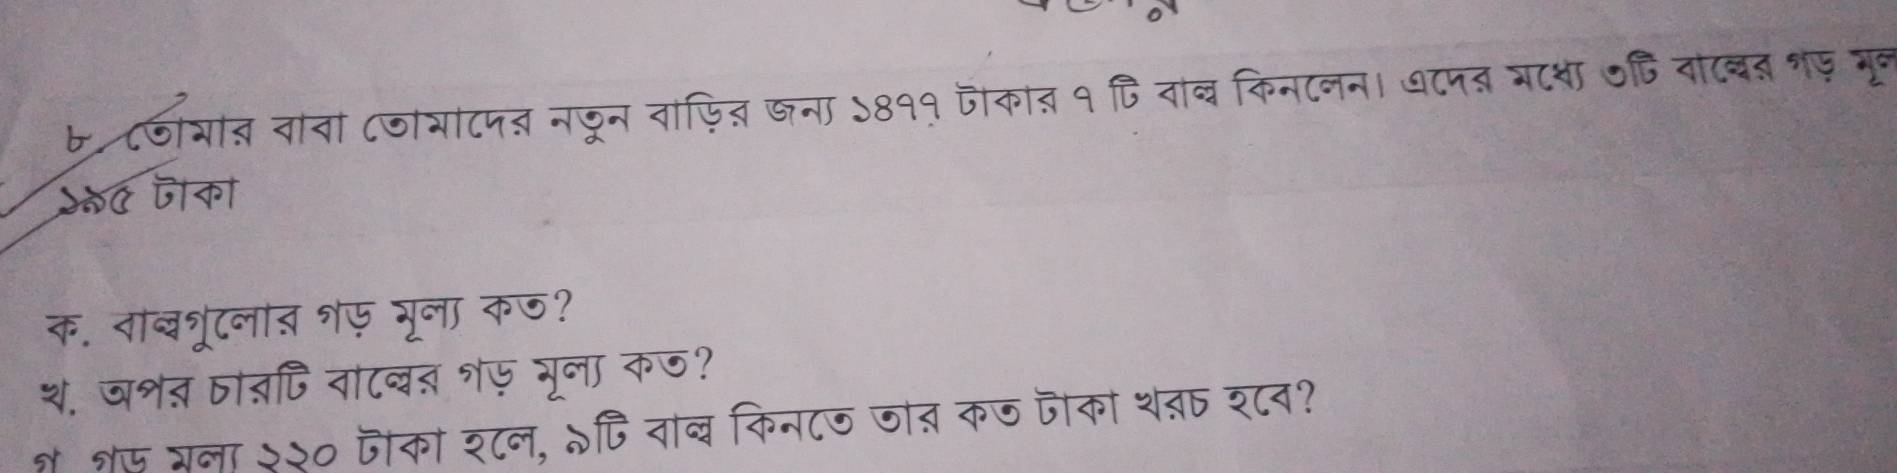 ৮. তোমার বাবা তোমাদের নতুন বাড়ির জন্য ১৪৭৭ টাকার ৭ টি বাল্ব কিনলেন। এদের মধ্যে ৩টি বাল্বের গড় মূল
১৯৫ টাকা
ক. বাল্বগুলোর গড় মূল্য কত?
খ. অপর চারটি বাল্বের গড় মূল্য কত?
গ গড় মূল্য ২২০ টাকা হলে, ৯টি বাল্ব কিনতে তার কত টাকা খরচ হবে?